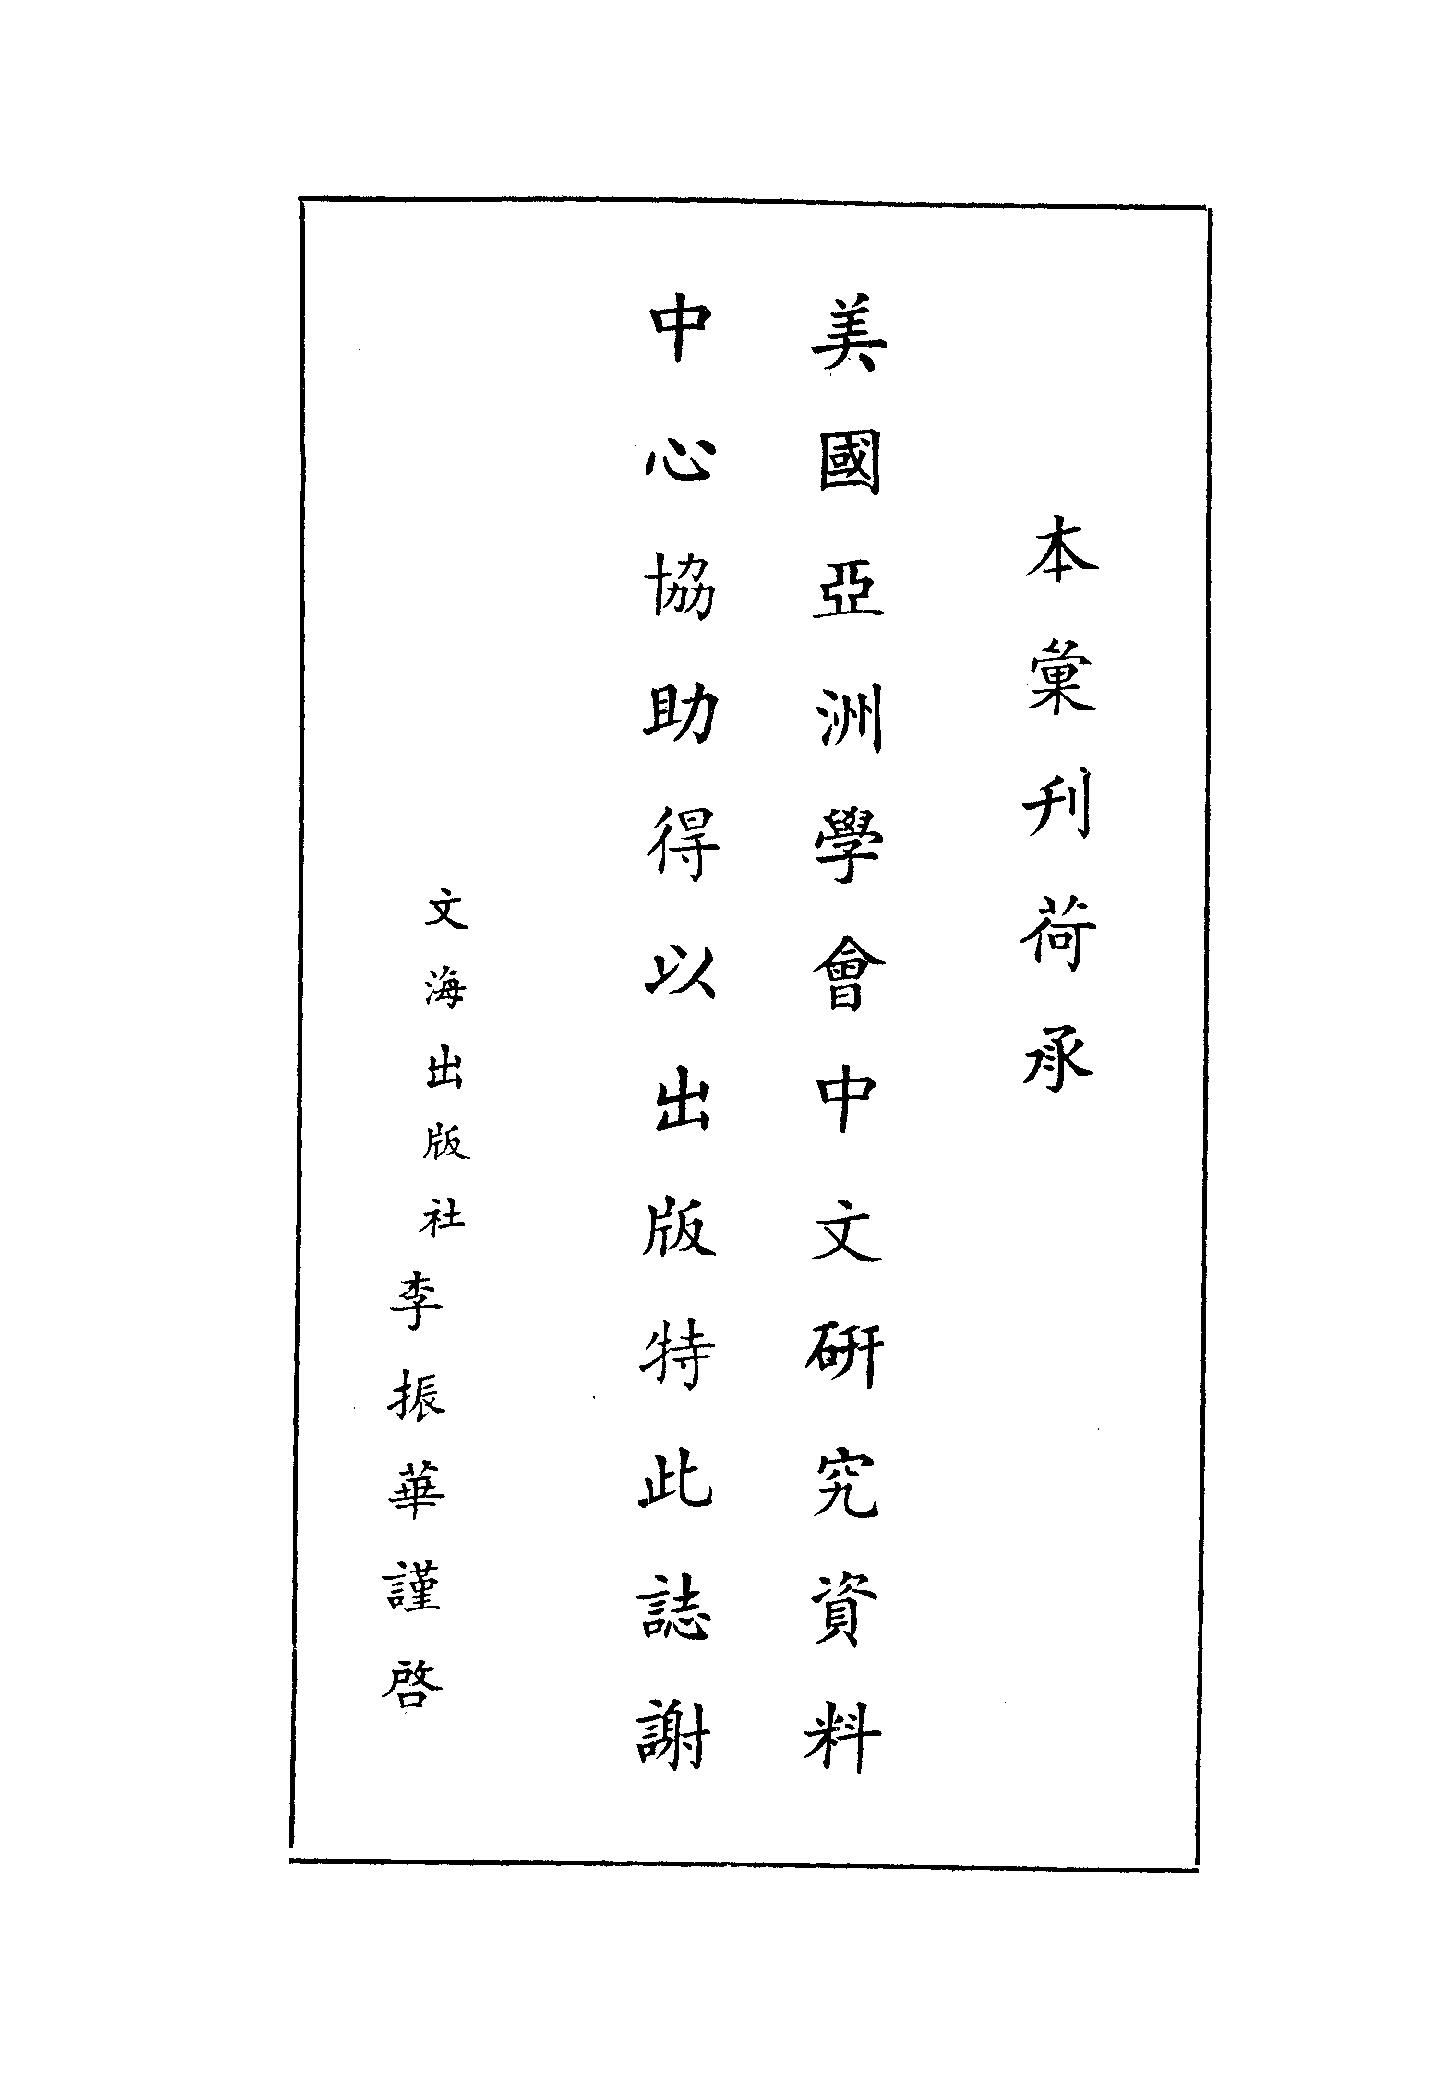 本彙刋荷承
美國亞洲學會中文硏究資料
中心協助得以出版特此誌謝
文海出版社
李振華謹啓